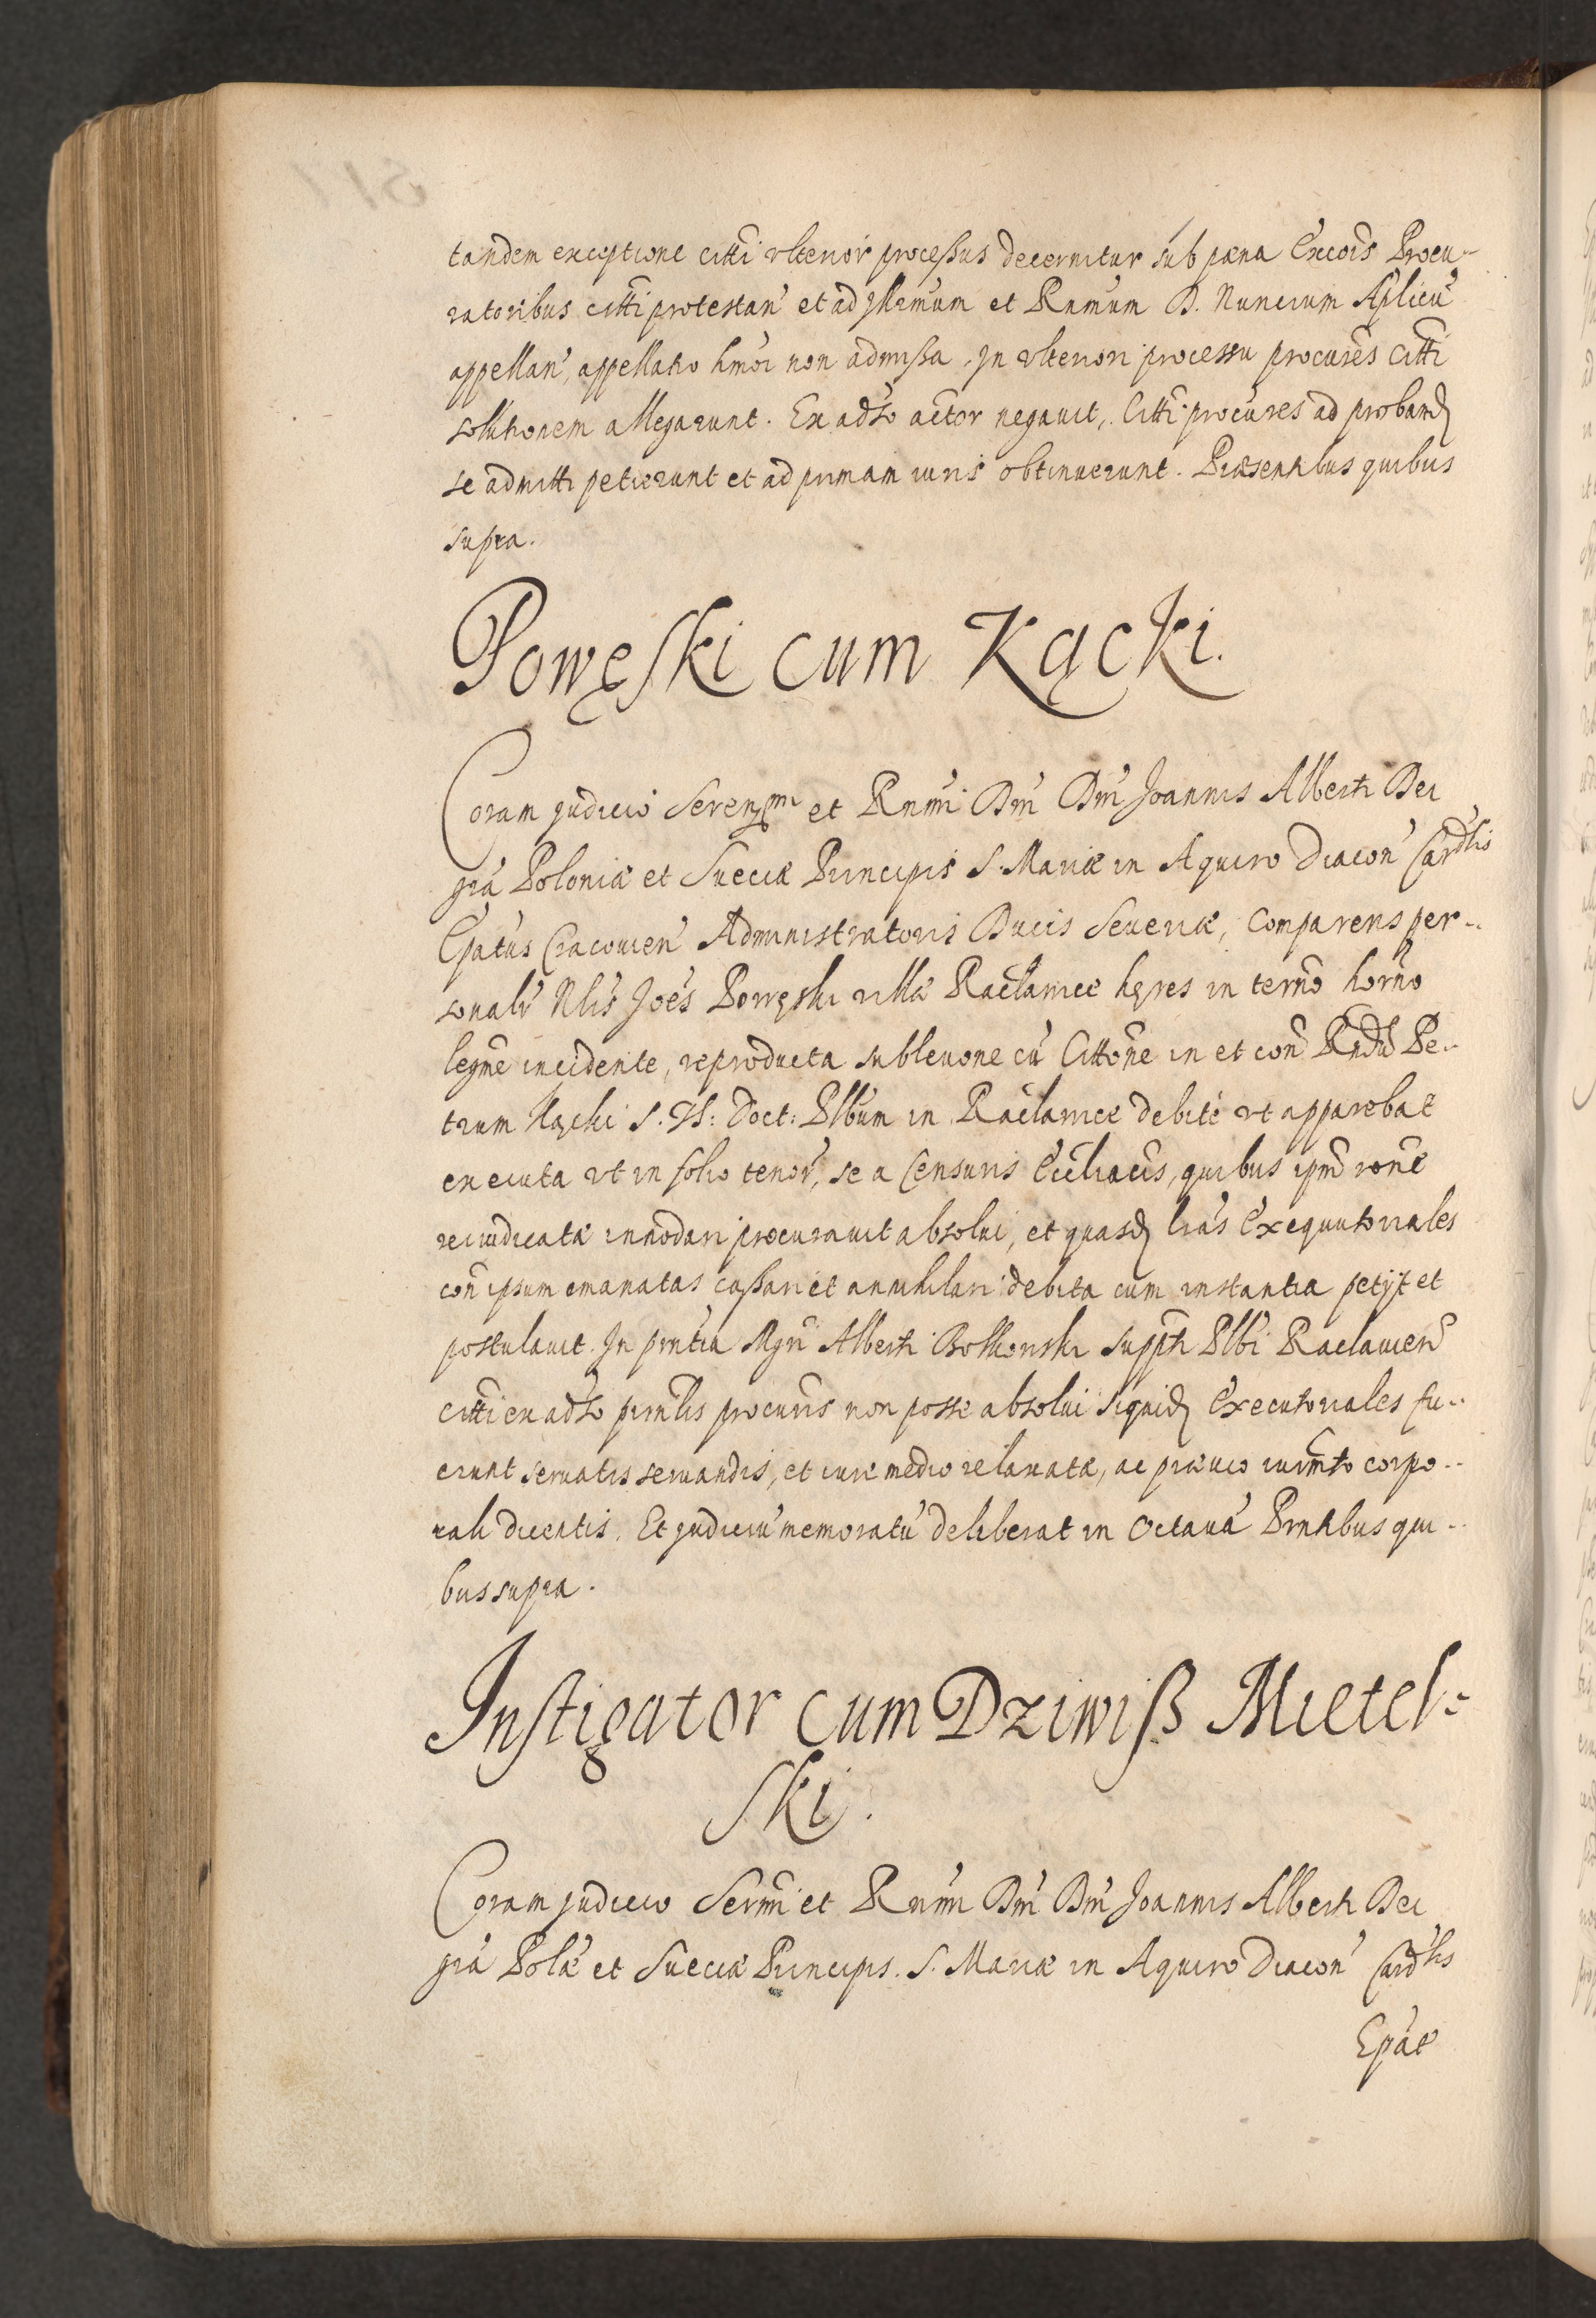 tandem exceptione citti ulterior processus decernitur sub pœna Excois Procu-
ratoribus citti protestan' et ad Illrmum et Rnmum D. Nuncium Aplicu'
appellan', appellatio hmoi non admissa. In ulteriori processu procures citti
solutionem allegarunt. Ex adso actor negavit, Citti procures ad proband
se admitti petierunt et ad primam iuris obtinuerunt. Præsentibus quibus
supra.
Powęski cum Kącki.
Coram judicio Serenssmi et Rnmi Dni Dni Joannis Alberti Dei
gra Poloniæ et Sueciæ Principis S. Mariæ in Aquiro Diacon' Cardlis
Epatus Cracovien' Administratoris Ducis Severiæ, Comparens per-
sonalr Nlis Joes Powęski villæ Raclawice hęres in termo horno
legme incidente, reproducta sublevone cu' Cittone in et con Rndu Pe-
trum Kącki S. Th: Doct: Plbum in Raclawice debite ut apparebat
executa ut in folio tenor, se a Censuris Eccliacis, quibus ipm rone
reiudicatæ innodari procuravit absolui, et quasd lras Exequutoriales
con ipsum emanatas cassari et annihilari debita cum instantia petijt et
postulavit. In pntia Mgri Alberti Bolkowski suppti Plbi Raclavien'
citti ex adso prinlis procuris non posse absolui siquid Executoriales fu-
erunt servatis servandis, et iure medio relaxatæ, ac prævio iurmto corpo-
rali dicentis. Et judiciu' memoratu' deliberat in Octava' Prntibus qui-
bus supra.
Instigator cum Dziwiß Mietel-
ski.
Coram judicio Sermi et Rnmi Dni Dni Joannis Alberti Dei
gra Polæ et Sueciæ Principis. S. Mariæ in Aquiro Diacon' Cardlis
Epat